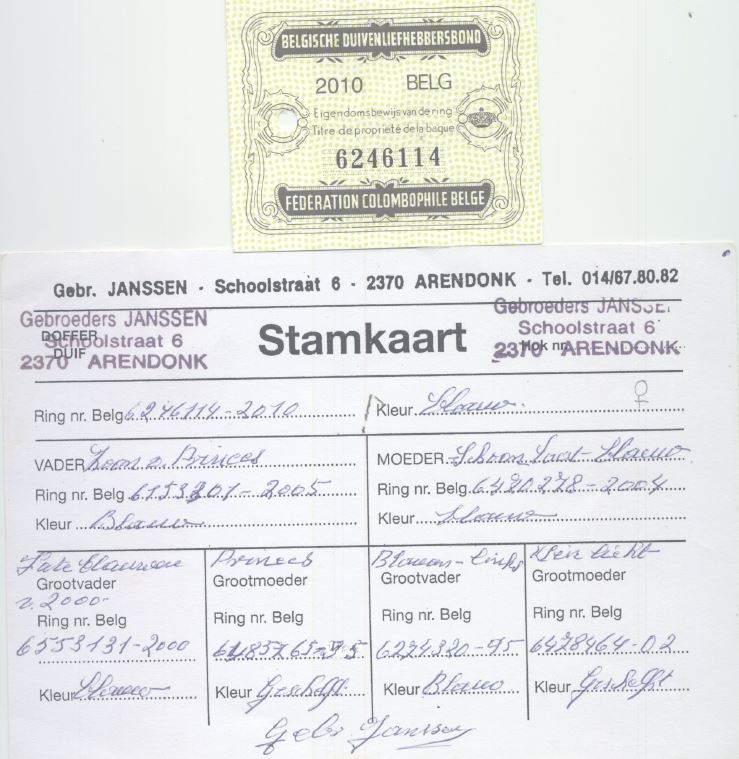 BELGISCHE DUIVENLIEFHEBBERSBOND
2010 BELG
Eigendomsbewijs van de ring
Titre de propriété de la bague
6246114
FÉDÉRATION COLOMBOPHILE BELGE
Gebr. JANSSEN - Schoolstraat 6 - 2370 ARENDONK - Tel. 014/67.80.82
Gebroeders JANSSEN
Schoolstraat 6
2370 ARENDONK
DOFFER
DUIF
Stamkaart
Gebroeders JANSSEN
Schoolstraat 6
2370 ARENDONK
Hok nr.
Ring nr. Belg 6246114-2010 Kleur Blauw ♀
VADER Zoon v. Princes
Ring nr. Belg 6153201-2005
Kleur Blauw
MOEDER Schoon Laat-Blauw
Ring nr. Belg 6420278-2004
Kleur Blauw
Late Blauwen
Grootvader
v. 2000
Ring nr. Belg
6553131-2000
Kleur Blauw
Princes
Grootmoeder
Ring nr. Belg
Kleur Geschelpt
Blauwen-
Grootvader
Ring nr. Belg
6274320-95
Kleur Blauw
Klein Licht
Grootmoeder
Ring nr. Belg
6428464-02
Kleur Geschelpt
Gebr Janssen